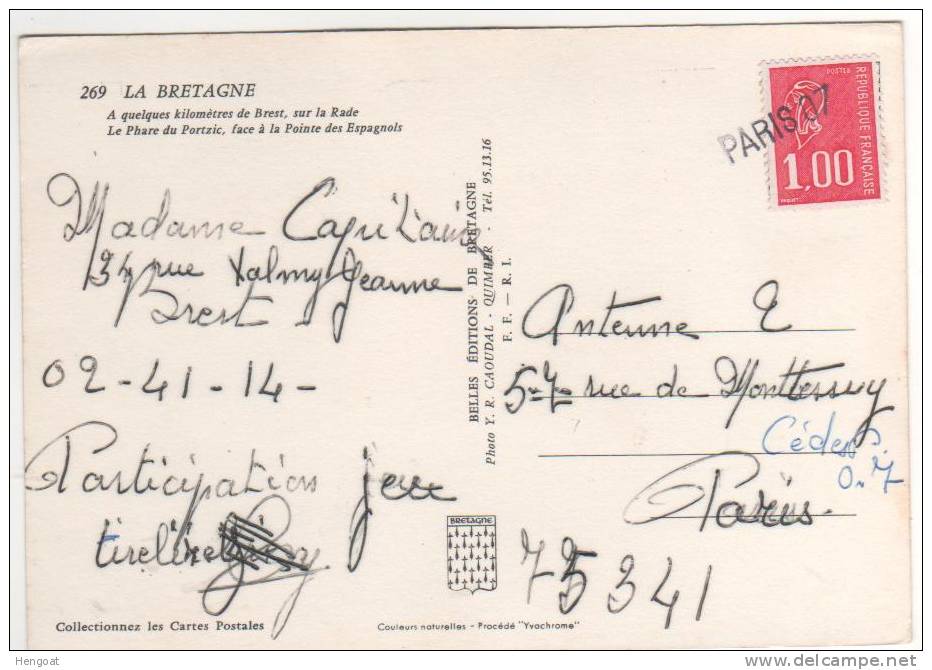 269 LA BRETAGNE
A quelques kilomètres de Brest, sur la Rade
Le Phare du Portzic, face à la Pointe des Espagnols
Madame Capitaine
34 rue Valmy Jeanne
Brest
02-41-14-
Participation jeu
tirelire
Collectionnez les Cartes Postales
BELLES ÉDITIONS DE BRETAGNE
Photo Y. R. CAOUDAL - QUIMPER - Tél. 95.13.16
F. F. — R. I.
BRETAGNE
Couleurs naturelles - Procédé "Yvachrome"
POSTES
REPUBLIQUE FRANÇAISE
1,00
PARIS 07
Antenne 2
5-7 rue de Monttessuy
Cédex
0.7
Paris.
75341
Hengoat
www.delcampe.net